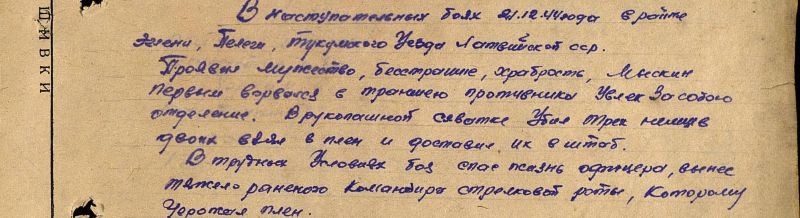 ШИВКИ
В наступательных боях 21.12.44 года в районе
Эзени, Пелеги, Тукумского Уезда Латвийской сср.
Проявив мужество, бесстрашие, храбрость, Мыскин
первым ворвался в траншею противника увлек за собою
отделение. В рукопашной схватке Убил трех немцев
двоих взял в плен и доставил их в штаб.
В трудных Условиях боя спас жизнь офицера, вынес
тяжело раненого Командира стрелковой роты, Которому
угрожал плен.